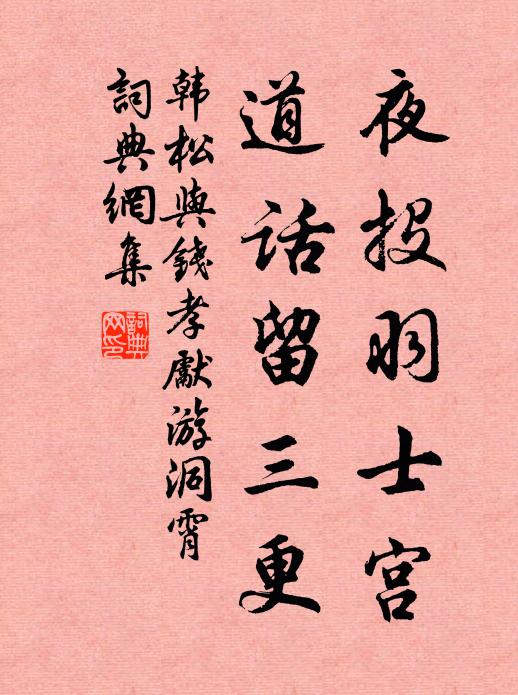 夜投羽士宫
道话留三更
韩松與錢孝獻游洞霄
詞典網集
詞典
网印